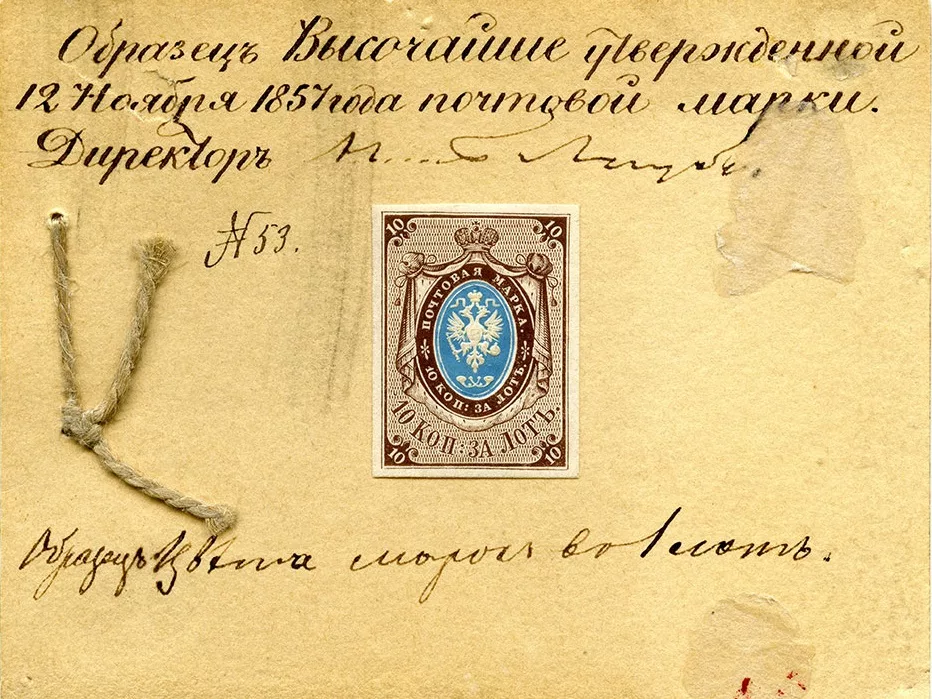 Образецъ Высочайше утвержденной
12 Ноября 1857 года почтовой марки.
Директоръ
№ 53.
10 10
ПОЧТОВАЯ МАРКА.
10 КОП: ЗА ЛОТЪ.
10 КОП: ЗА ЛОТЪ.
10 10
Образецъ цвѣта марокъ во 1 лотъ.